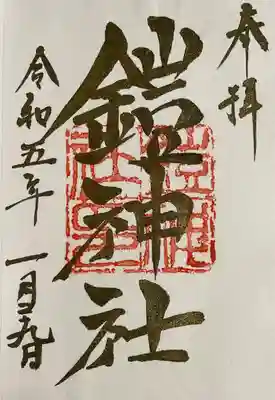 奉拝
鎧神社
令和五年 一月 九日